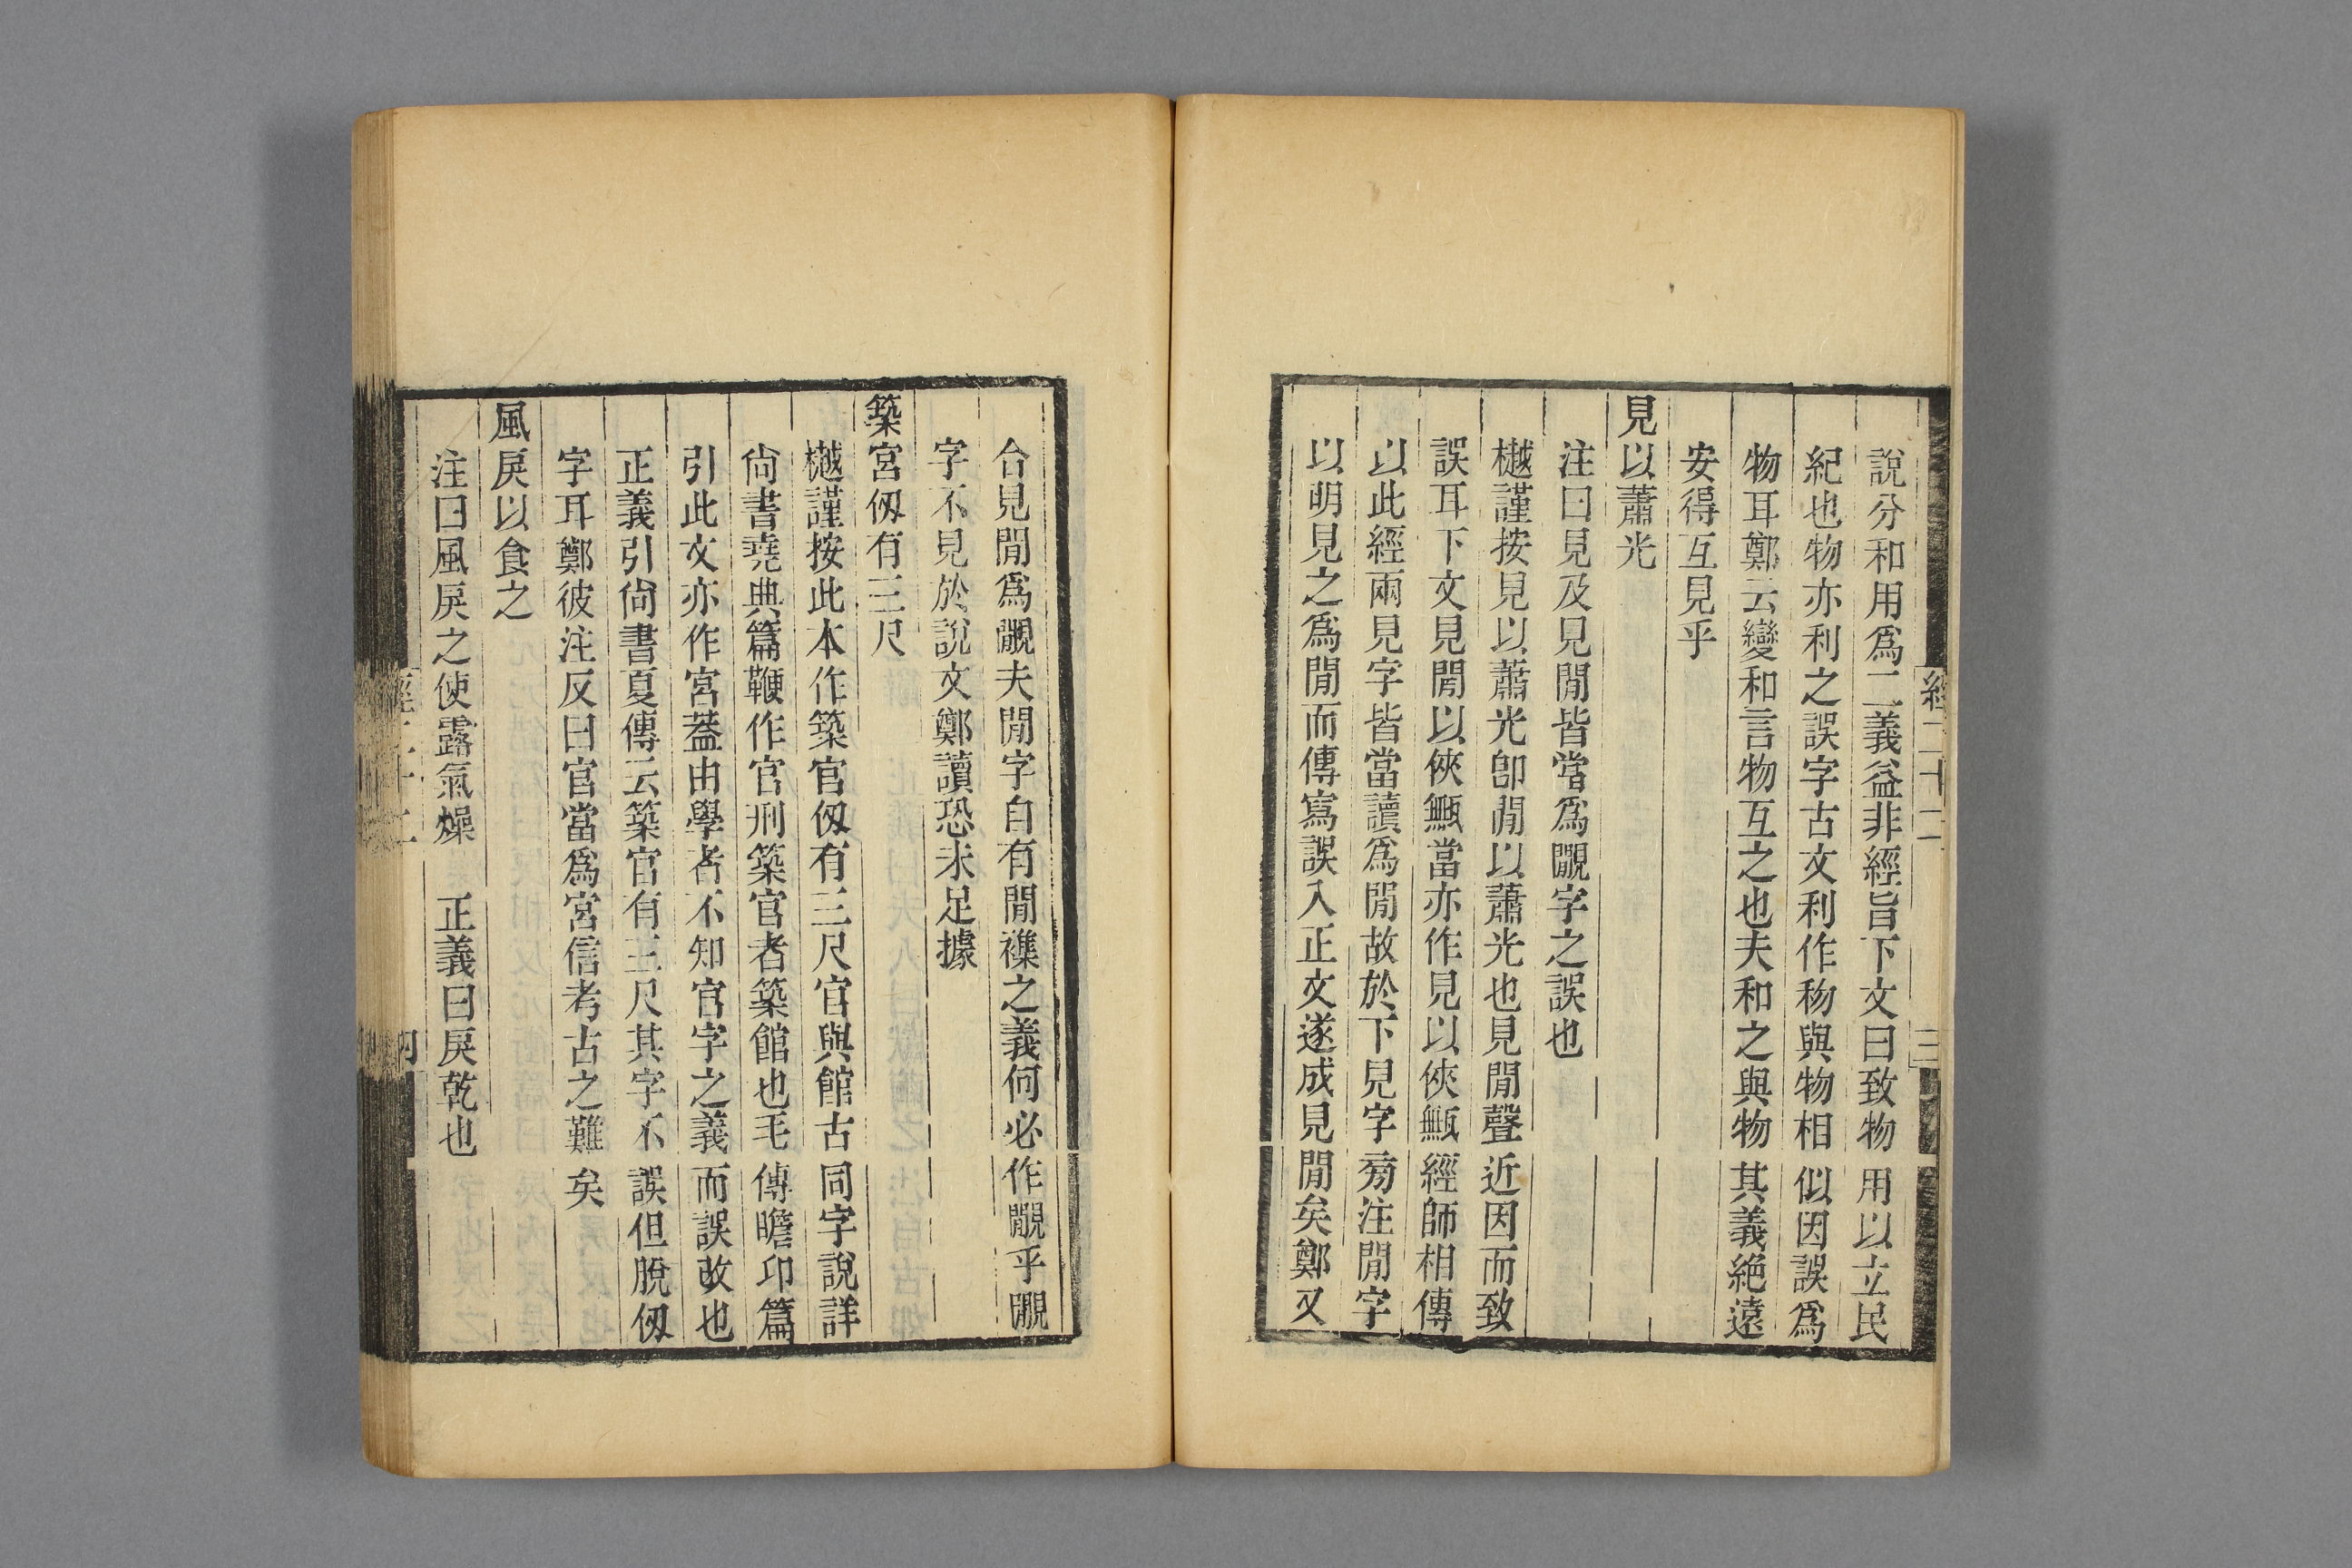 說分和用爲二義益非經旨下文曰致物用以立民
紀也物亦利之誤字古文利作𥝤與物相似因誤爲
物耳鄭云變和言物互之也夫和之與物其義絶遠
安得互見乎
見以蕭光
注曰見及見閒皆當爲覸字之誤也
樾謹按見以蕭光卽閒以蕭光也見閒聲近因而致
誤耳下文見閒以俠甒當亦作見以俠甒經師相傳
以此經兩見字皆當讀爲閒故於下見字旁注閒字
以明見之爲閒而傳寫誤入正文遂成見閒矣鄭又
經二十二
三
合見閒爲覸夫閒字自有閒襍之義何必作覸乎覸
字不見於說文鄭讀恐未足據
築宮仭有三尺
樾謹按此本作築官仭有三尺官與館古同字說詳
尙書堯典篇鞭作官刑築官者築館也毛傳瞻卬篇
引此文亦作宮葢由學者不知官字之義而誤攺也
正義引尙書夏傳云築官有三尺其字不誤但脫仭
字耳鄭彼注反曰官當爲宮信考古之難矣
風戾以食之
注曰風戾之使露氣燥 正義曰戾乾也
經二十二
四